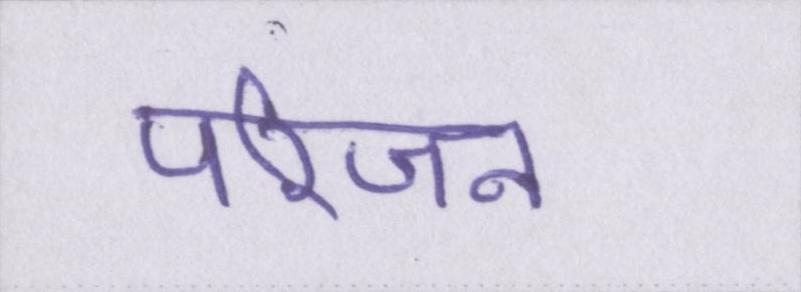 परिजन